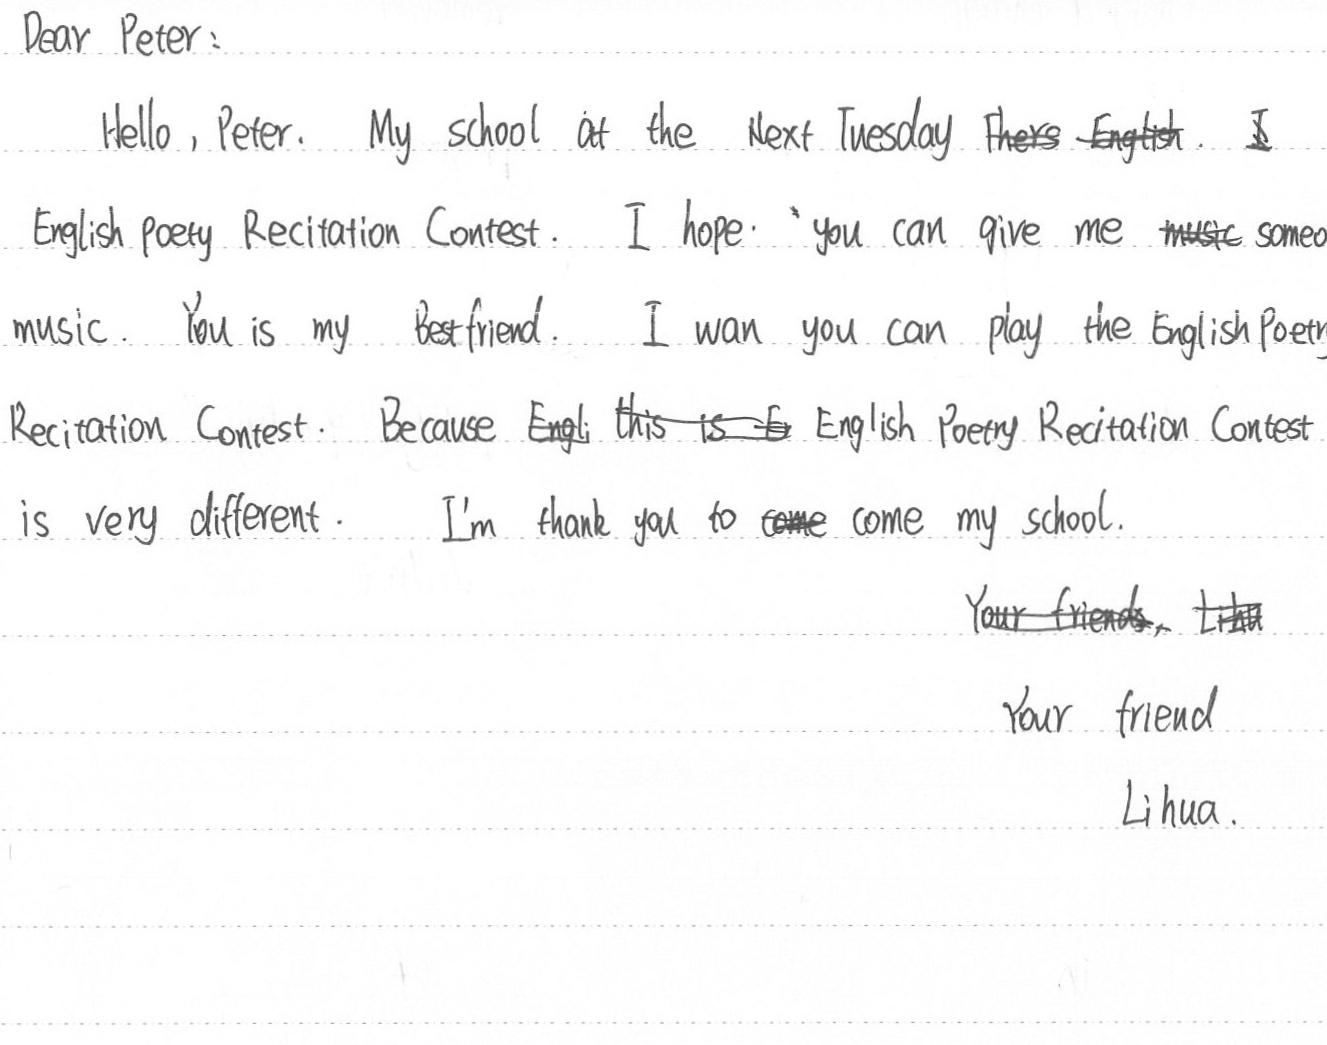 Dear Peter:
Hello, Peter. My school at the Next Tuesday
English Poety Recitation Contest. I hope. you can give me someo
music. You is my Best friend. I wan you can play the English Poetry
Recitation Contest. Because English Poetry Recitation Contest
is very different. I'm thank you to come my school.
Your friend
Li hua.